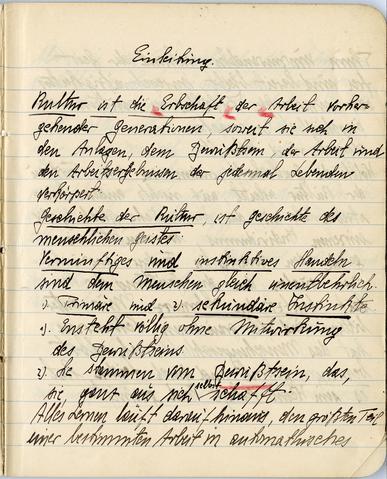 Einleitung.
Kultur ist die Erbschaft der Arbeit vorher-
gehender Generationen, soweit sie sich in
den Anlagen, dem Bewußtsein, der Arbeit und
den Arbeitsergebnissen der jedemal Lebenden
verkörpert.
Geschichte der Kultur, ist Geschichte des
menschlichen Geistes.
Vernünftiges und instinktives Handeln
sind dem Menschen gleich unentbehrlich.
1). Primäre und 2). sekundäre Instinkte
1). Ensteht völlig ohne Mitwirkung
des Bewußtseins.
2). Sie stammen vom Bewußtsein, das,
sie, ganz aus sich selbst schafft.
Alles lernen läuft darauf hinaus, den größten Teil
einer bestimmten Arbeit in automathisches